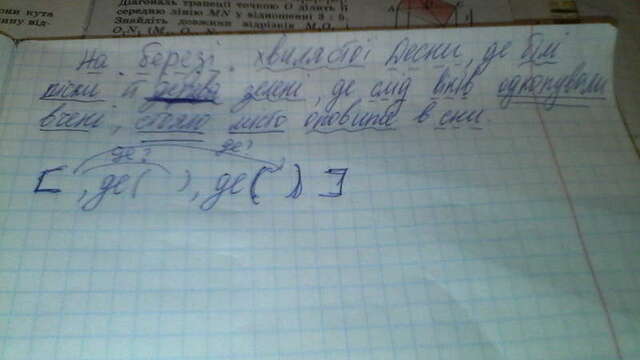 они кута
ину від-
Діагональ трапеції точкою O ділить її
середню лінію MN у відношенні 3 : 5.
Знайдіть довжини відрізків
A
На березі хвилястої Десни, де білі
піски й дерева зелені, де слід віків одкопували
вчені, стояло місто оповите в сни.
де? де?
[ , де ( ), де ( ) ]